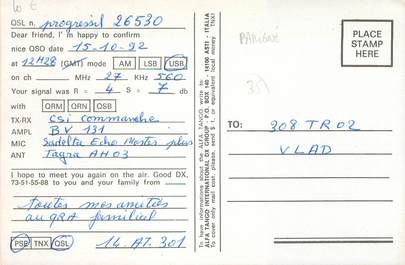 Lo E
QSL n. progressif 26530
Dear friend, I'm happy to confirm
nice QSO date 15-10-92
at 12H28 (GMT) mode AM LSB USB
on ch MHz 27 KHz 560
Your signal was R = 4 S = 7 db
with QRM QRN QSB
TX-RX CSi commanche
AMPL BV 131
MIC Sadelta Echo Master plus
ANT Tagra AH03
I hope to meet you again on the air. Good DX,
73-51-55-88 to you and your family from
toutes mes amitiés
au QRA familial
PSE TNX QSL 14.AT.301
To have informations about the ALFA TANGO write to:
ALFA TANGO INTERNATIONAL DX GROUP - P.O. BOX 140 - 14100 ASTI - ITALIA
To cover only mail cost, please send $ 1, or equivalent postage. TNX!
PLACE
STAMP
HERE
TO: 308 TR02
VLAD